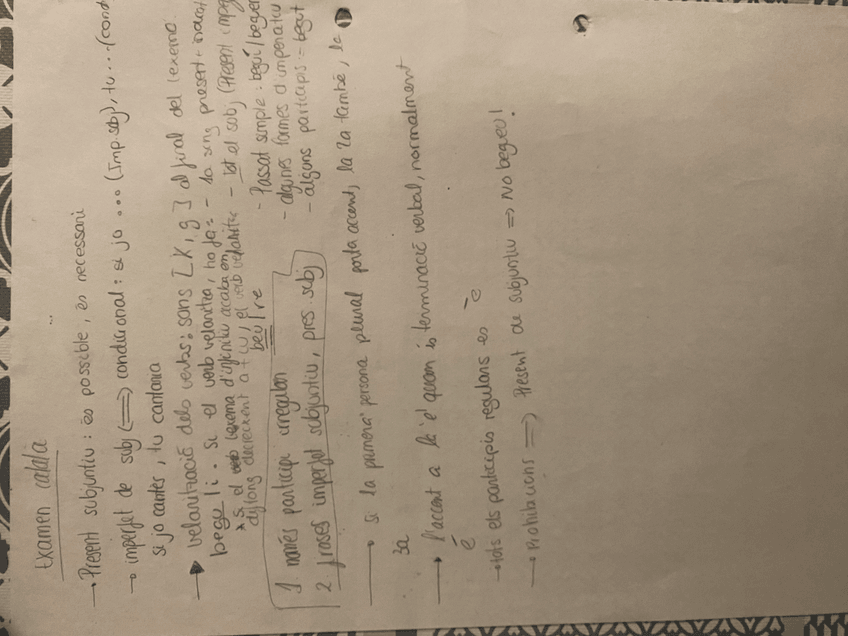 Examen català
→ Present subjuntiu: és possible, és necessari
→ imperfet de subj (⟹) condicional: si jo ... (Imp. sbj), tu ... (cond
si jo cantés, tu cantaria
→ velarització dels verbs: sons [K, g] al final del lexema.
begu li. Si el verb velaritza, ho fa: - 1a sing present indicat
* Si el lexema d'infinitiu acaba en - tot el subj (Present, imper
diftong decreixent a + u, el verb velaritza - Passat simple: beguí/begueres
beu/re - algunes formes d'imperatiu
- alguns participis: begut
1. només participi irregulars
2. frases imperfet subjuntiu, pres. subj
→ Si la primera persona plural porta accent, la 2a també, la
3a
→ l'accent a la 'e' quan és terminació verbal, normalment
é
→ tots els participis regulars és è
→ Prohibicions ⟹ Present de subjuntiu ⟹ No begueu!